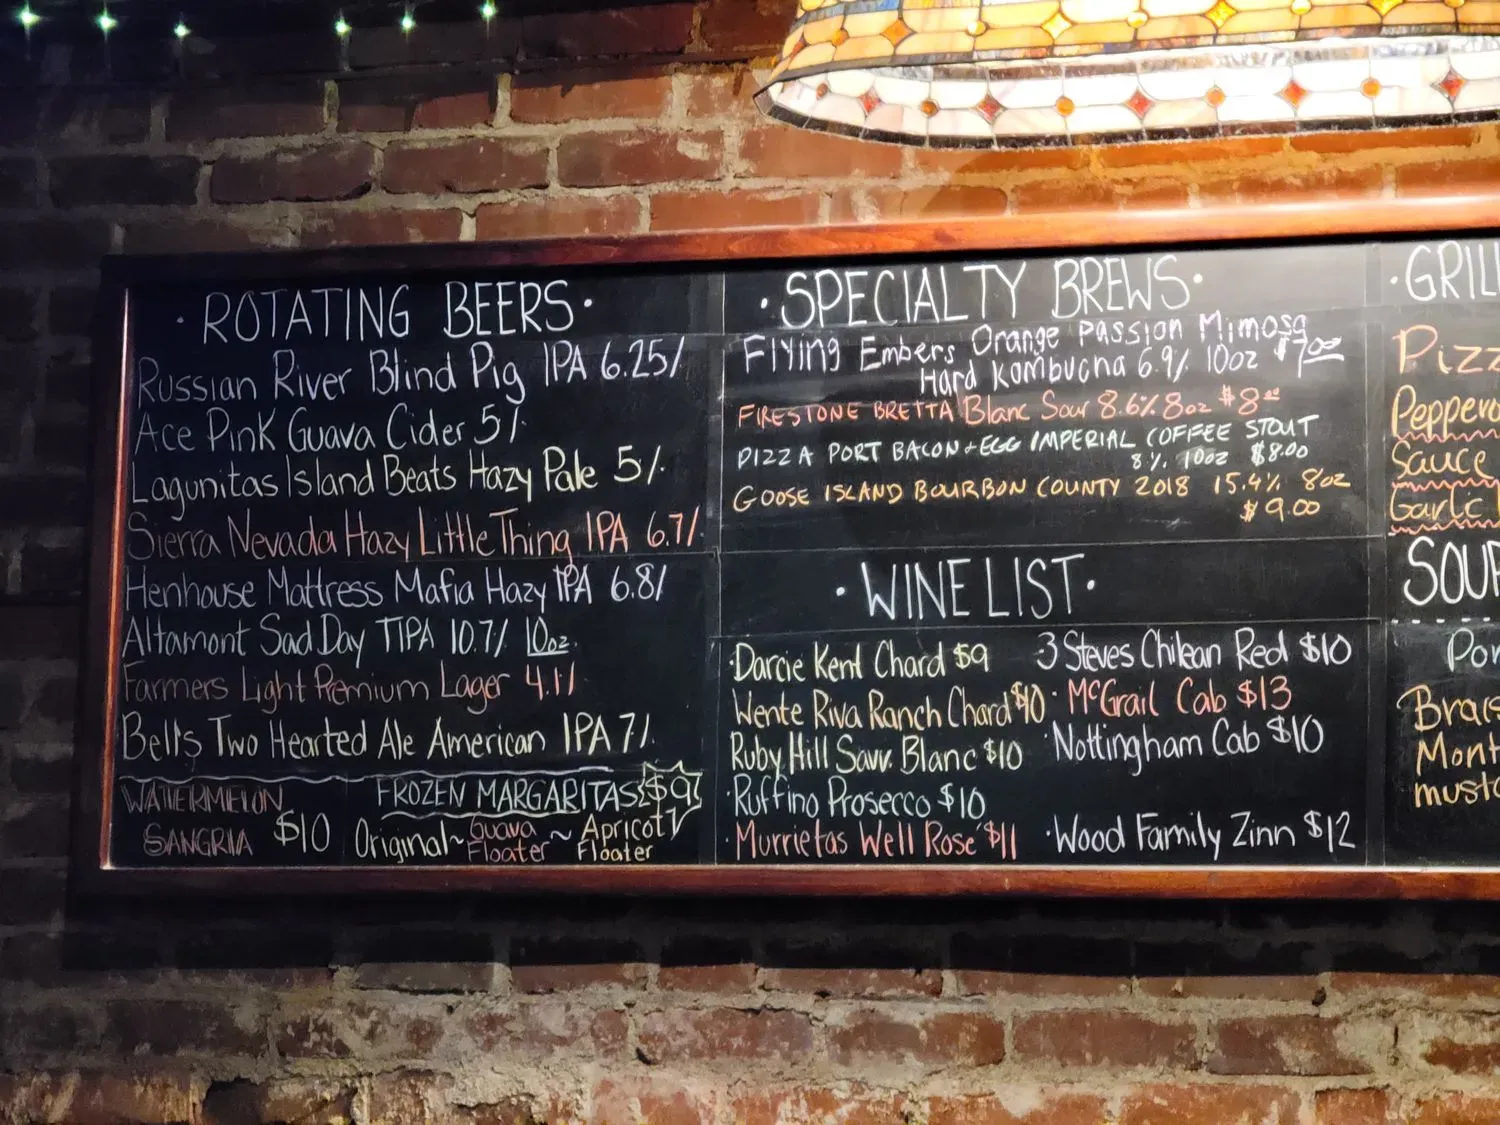 · ROTATING BEERS ·
Russian River Blind Pig IPA 6.25%
Ace Pink Guava Cider 5%
Lagunitas Island Beats Hazy Pale 5%
Sierra Nevada Hazy Little Thing IPA 6.7%
Henhouse Mattress Mafia Hazy IPA 6.8%
Altamont Sad Day TIPA 10.7% 10oz.
Farmers Light Premium Lager 4.1%
Bell's Two Hearted Ale American IPA 7%
WATERMELON
SANGRIA $10
FROZEN MARGARITAS $9
Original ~ Guava Floater ~ Apricot Floater
· SPECIALTY BREWS ·
Flying Embers Orange Passion Mimosa
Hard Kombucha 6.9% 10oz $7.00
FIRESTONE BRETTA Blanc Sour 8.6% 8oz $8.00
PIZZA PORT BACON + EGG IMPERIAL COFFEE STOUT
8% 10oz $8.00
GOOSE ISLAND BOURBON COUNTY 2018 15.4% 8oz
$9.00
· WINE LIST ·
· Darcie Kent Chard $9
Wente Riva Ranch Chard $10
Ruby Hill Sauv. Blanc $10
· Ruffino Prosecco $10
· Murrietas Well Rose' $11
3 Steves Chilean Red $10
· McGrail Cab $13
· Nottingham Cab $10
· Wood Family Zinn $12
· GRILL
Pizz
Peppero
Sauce
Garlic
SOUP
Por
Brais
Mont
musta